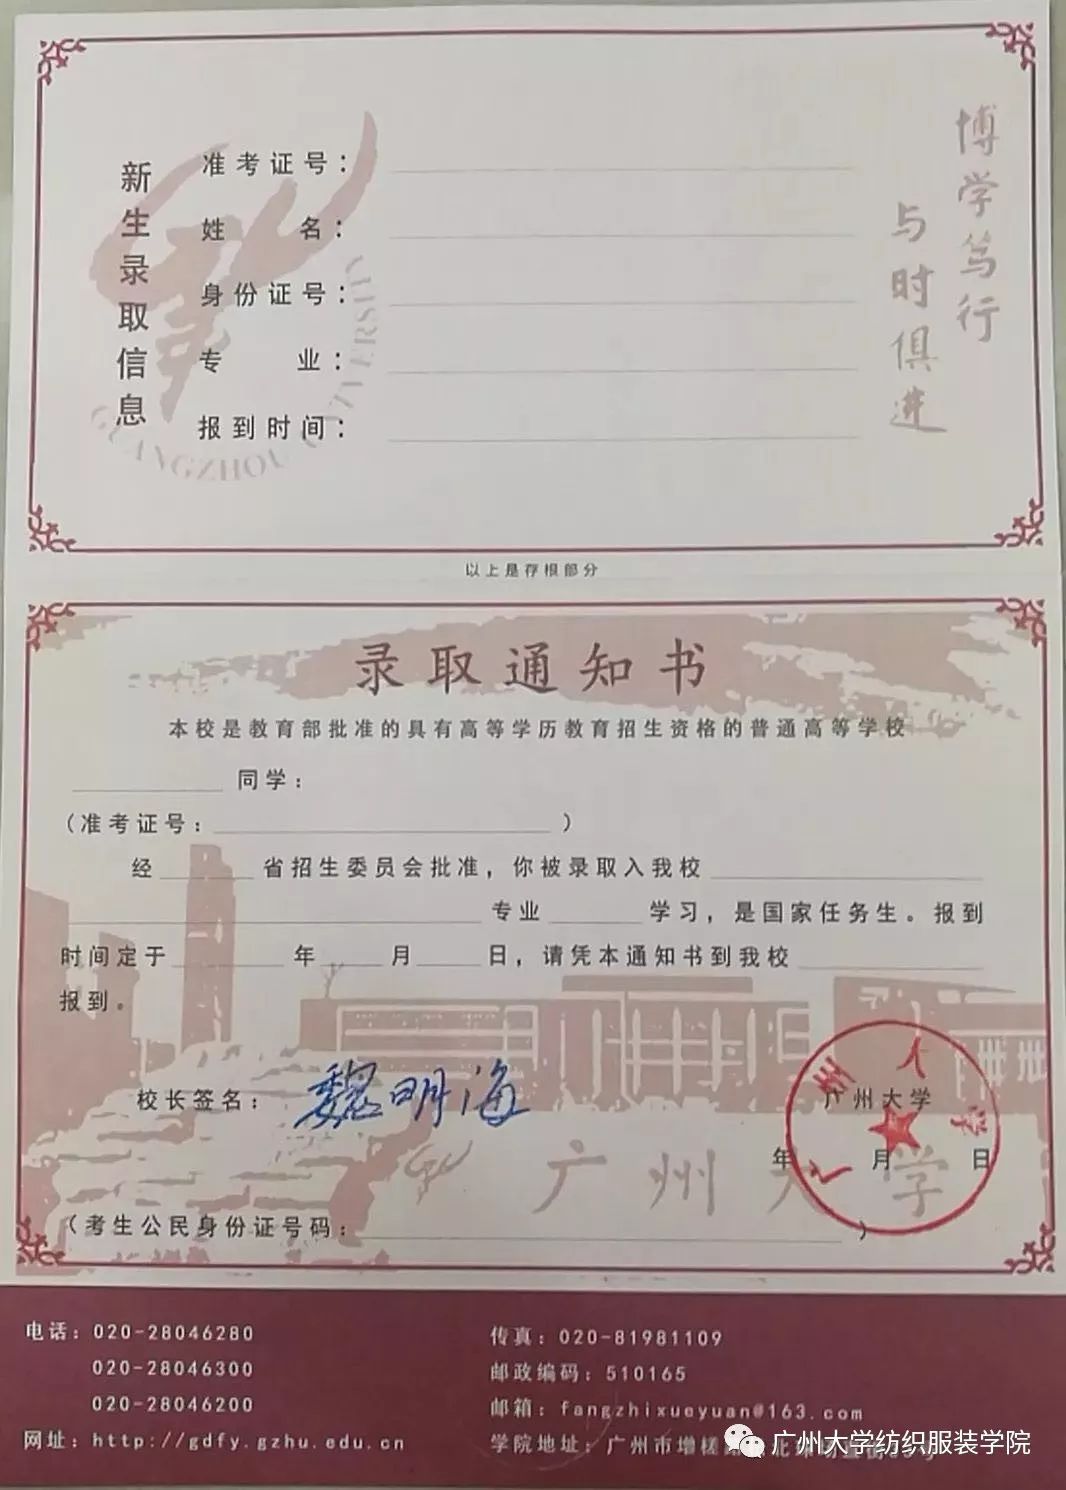 新生录取信息
准考证号：
姓名：
身份证号：
专业：
报到时间：
博学笃行
与时俱进
GUANGZHOU UNIVERSITY
以上是存根部分
录取通知书
本校是教育部批准的具有高等学历教育招生资格的普通高等学校
同学：
（准考证号：）
经 省招生委员会批准，你被录取入我校
专业 学习，是国家任务生。报到
时间定于 年 月 日，请凭本通知书到我校
报到。
校长签名：魏明海
广州大学
年 月 日
广州大学
广州大学
（考生公民身份证号码：）
电话：020-28046280
020-28046300
020-28046200
网址：http://gdfy.gzhu.edu.cn
传真：020-81981109
邮政编码：510165
邮箱：fangzhixueyuan@163.com
学院地址：广州市增槎路
广州大学纺织服装学院